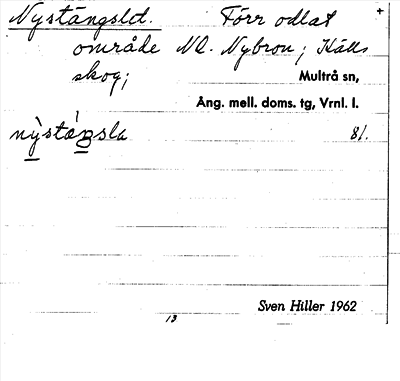 Nystängslet. Förr odlat +
område NÖ. Nybron; Källs
skog; Multrå sn,
Ång. mell. doms. tg, Vrnl. l.
nỳstáŋsla 81.
Sven Hiller 1962
13